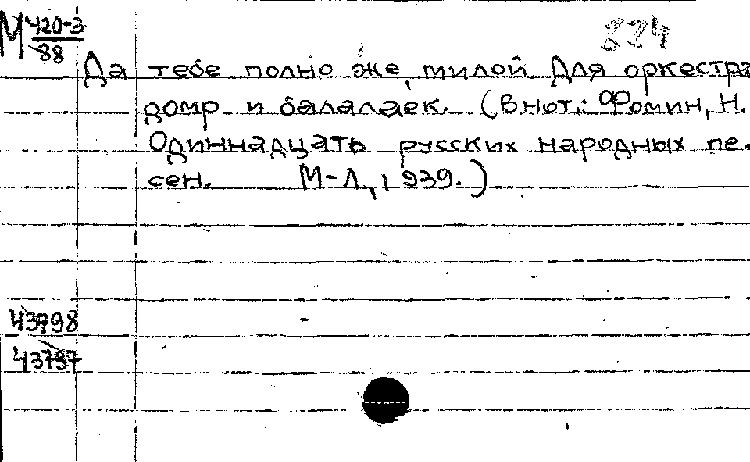 М 420-3
88
224
Да тебе полно же, милой Для оркестра
домр и балалаек. (В нот.: Фомин, Н.
Одиннадцать русских народных пе-
сен. М-Л, 1939.)
43798
43797